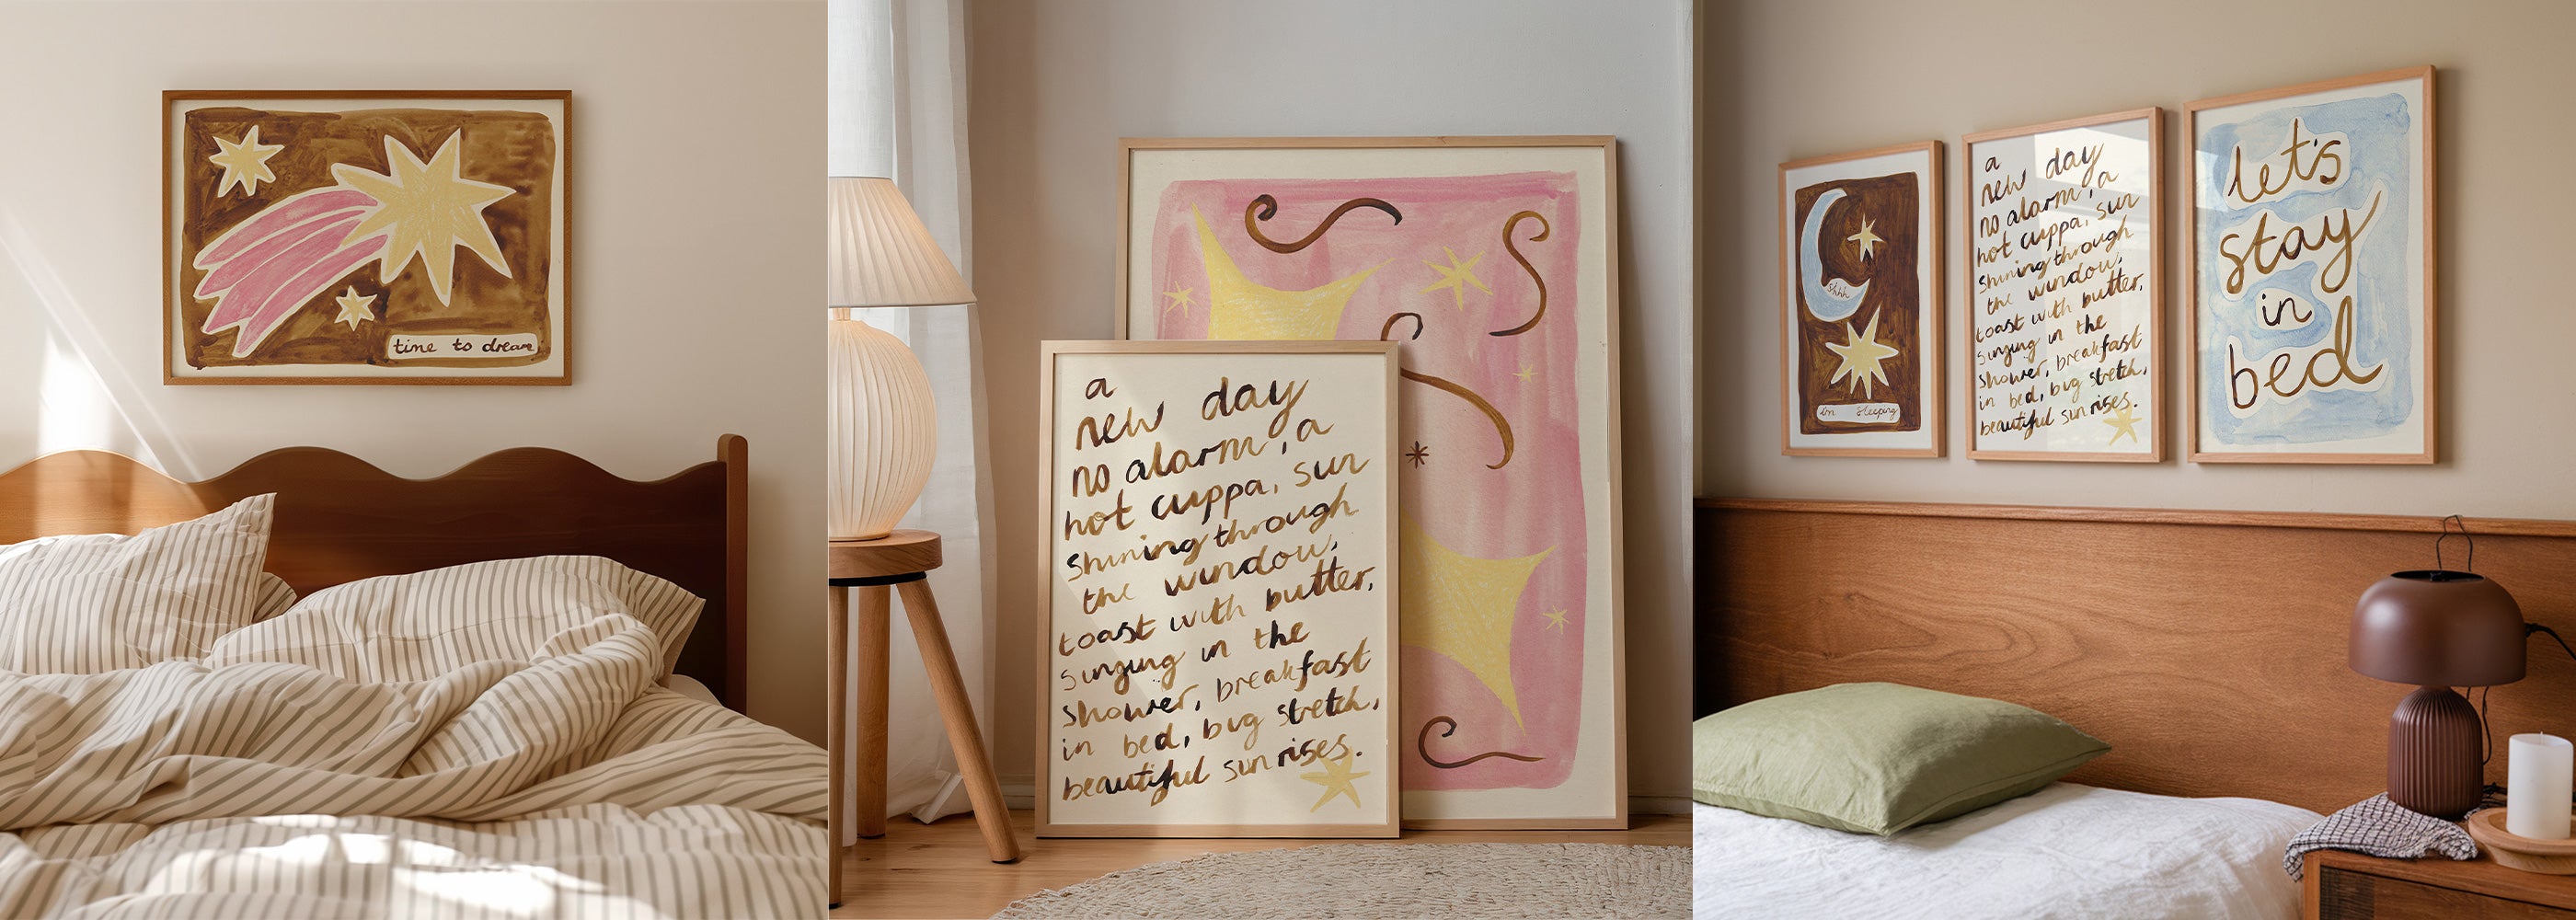 time to dream
a
new day
no alarm, a
hot cuppa, sun
shining through
the window,
toast with butter,
singing in the
shower, breakfast
in bed, big stretch,
beautiful sunrises.
shhh
im sleeping
a
new day
no alarm, a
hot cuppa, sun
shining through
the window,
toast with butter,
singing in the
shower, breakfast
in bed, big stretch,
beautiful sunrises.
let's
stay
in
bed